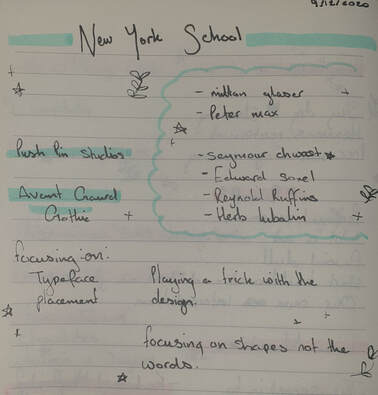 9/12/2020
New York School
- milton glaser
- Peter max
Push Pin Studios
- Seymour chwast
- Edward sorel
- Reynold Ruffins
Avant Gaurd
Gothic
- Herb lubalin
focusing on:
Typeface
placement
Playing a trick with the
design.
focusing on shapes not the
words.